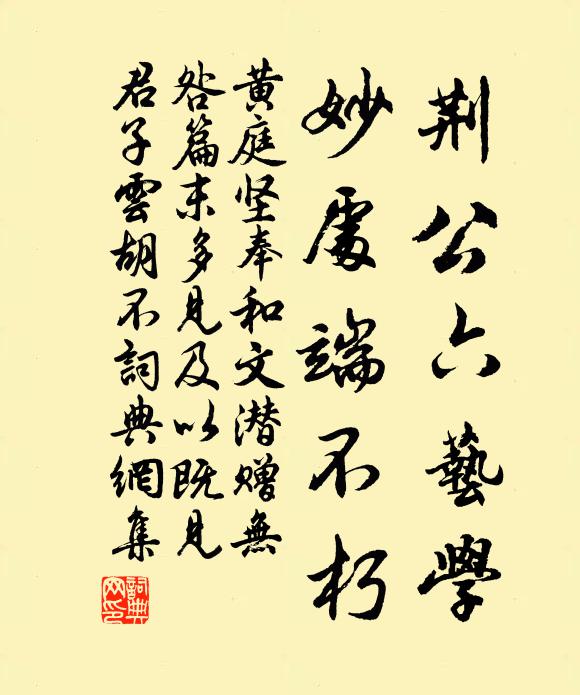 荆公六藝學
妙處端不朽
黄庭坚奉和文潜贈無
咎篇末多見及以既見
君子雲胡不詞典網集
詞典
网印